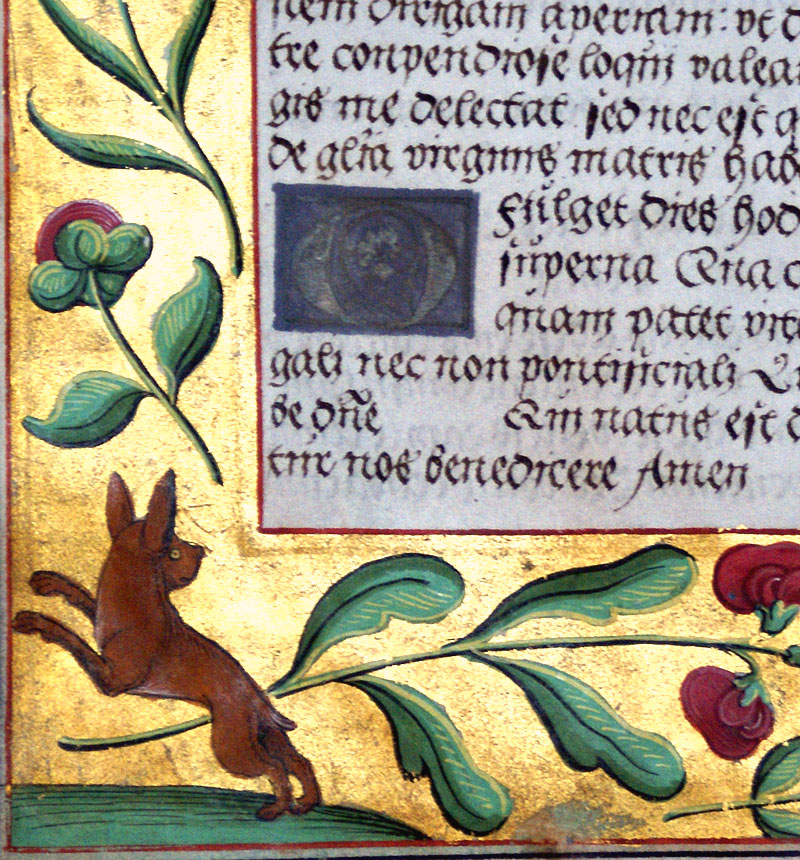 nem dirigam aperiam: vt d
tre conpendiose loqui valea
gis me delectat sed nec est q
de gl̃ia virginis matris hab
Fulget dies hod
superna Qua c
quam patet vit
gali nec non pontificiali Qu
be dñe Qui natus est d
tur nos benedicere Amen